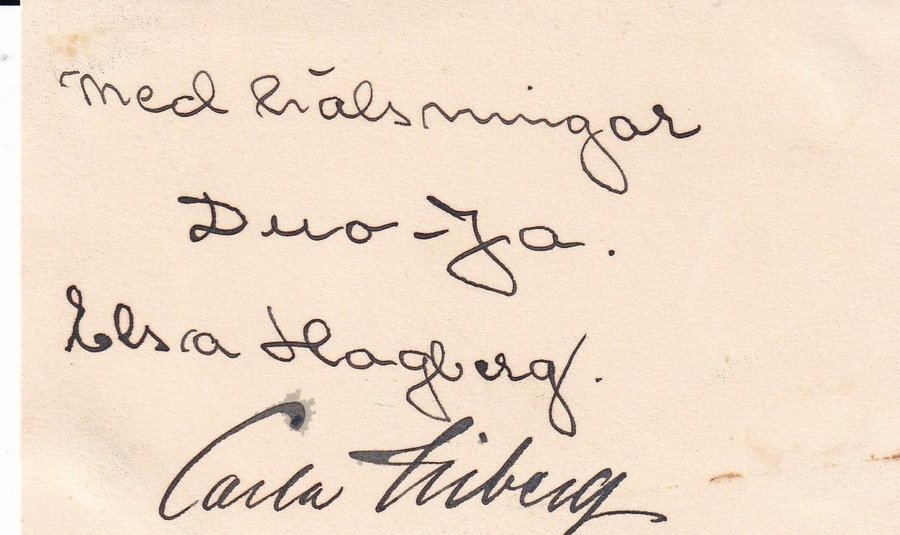 Med hälsningar
Duo-Ja.
Elsa Hagberg.
Carla Friberg